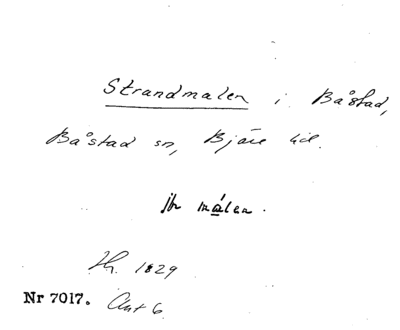 Strandmalen i Båstad,
Båstad sn, Bjäre hd.
jfr målen.
1829
Nr 7017.